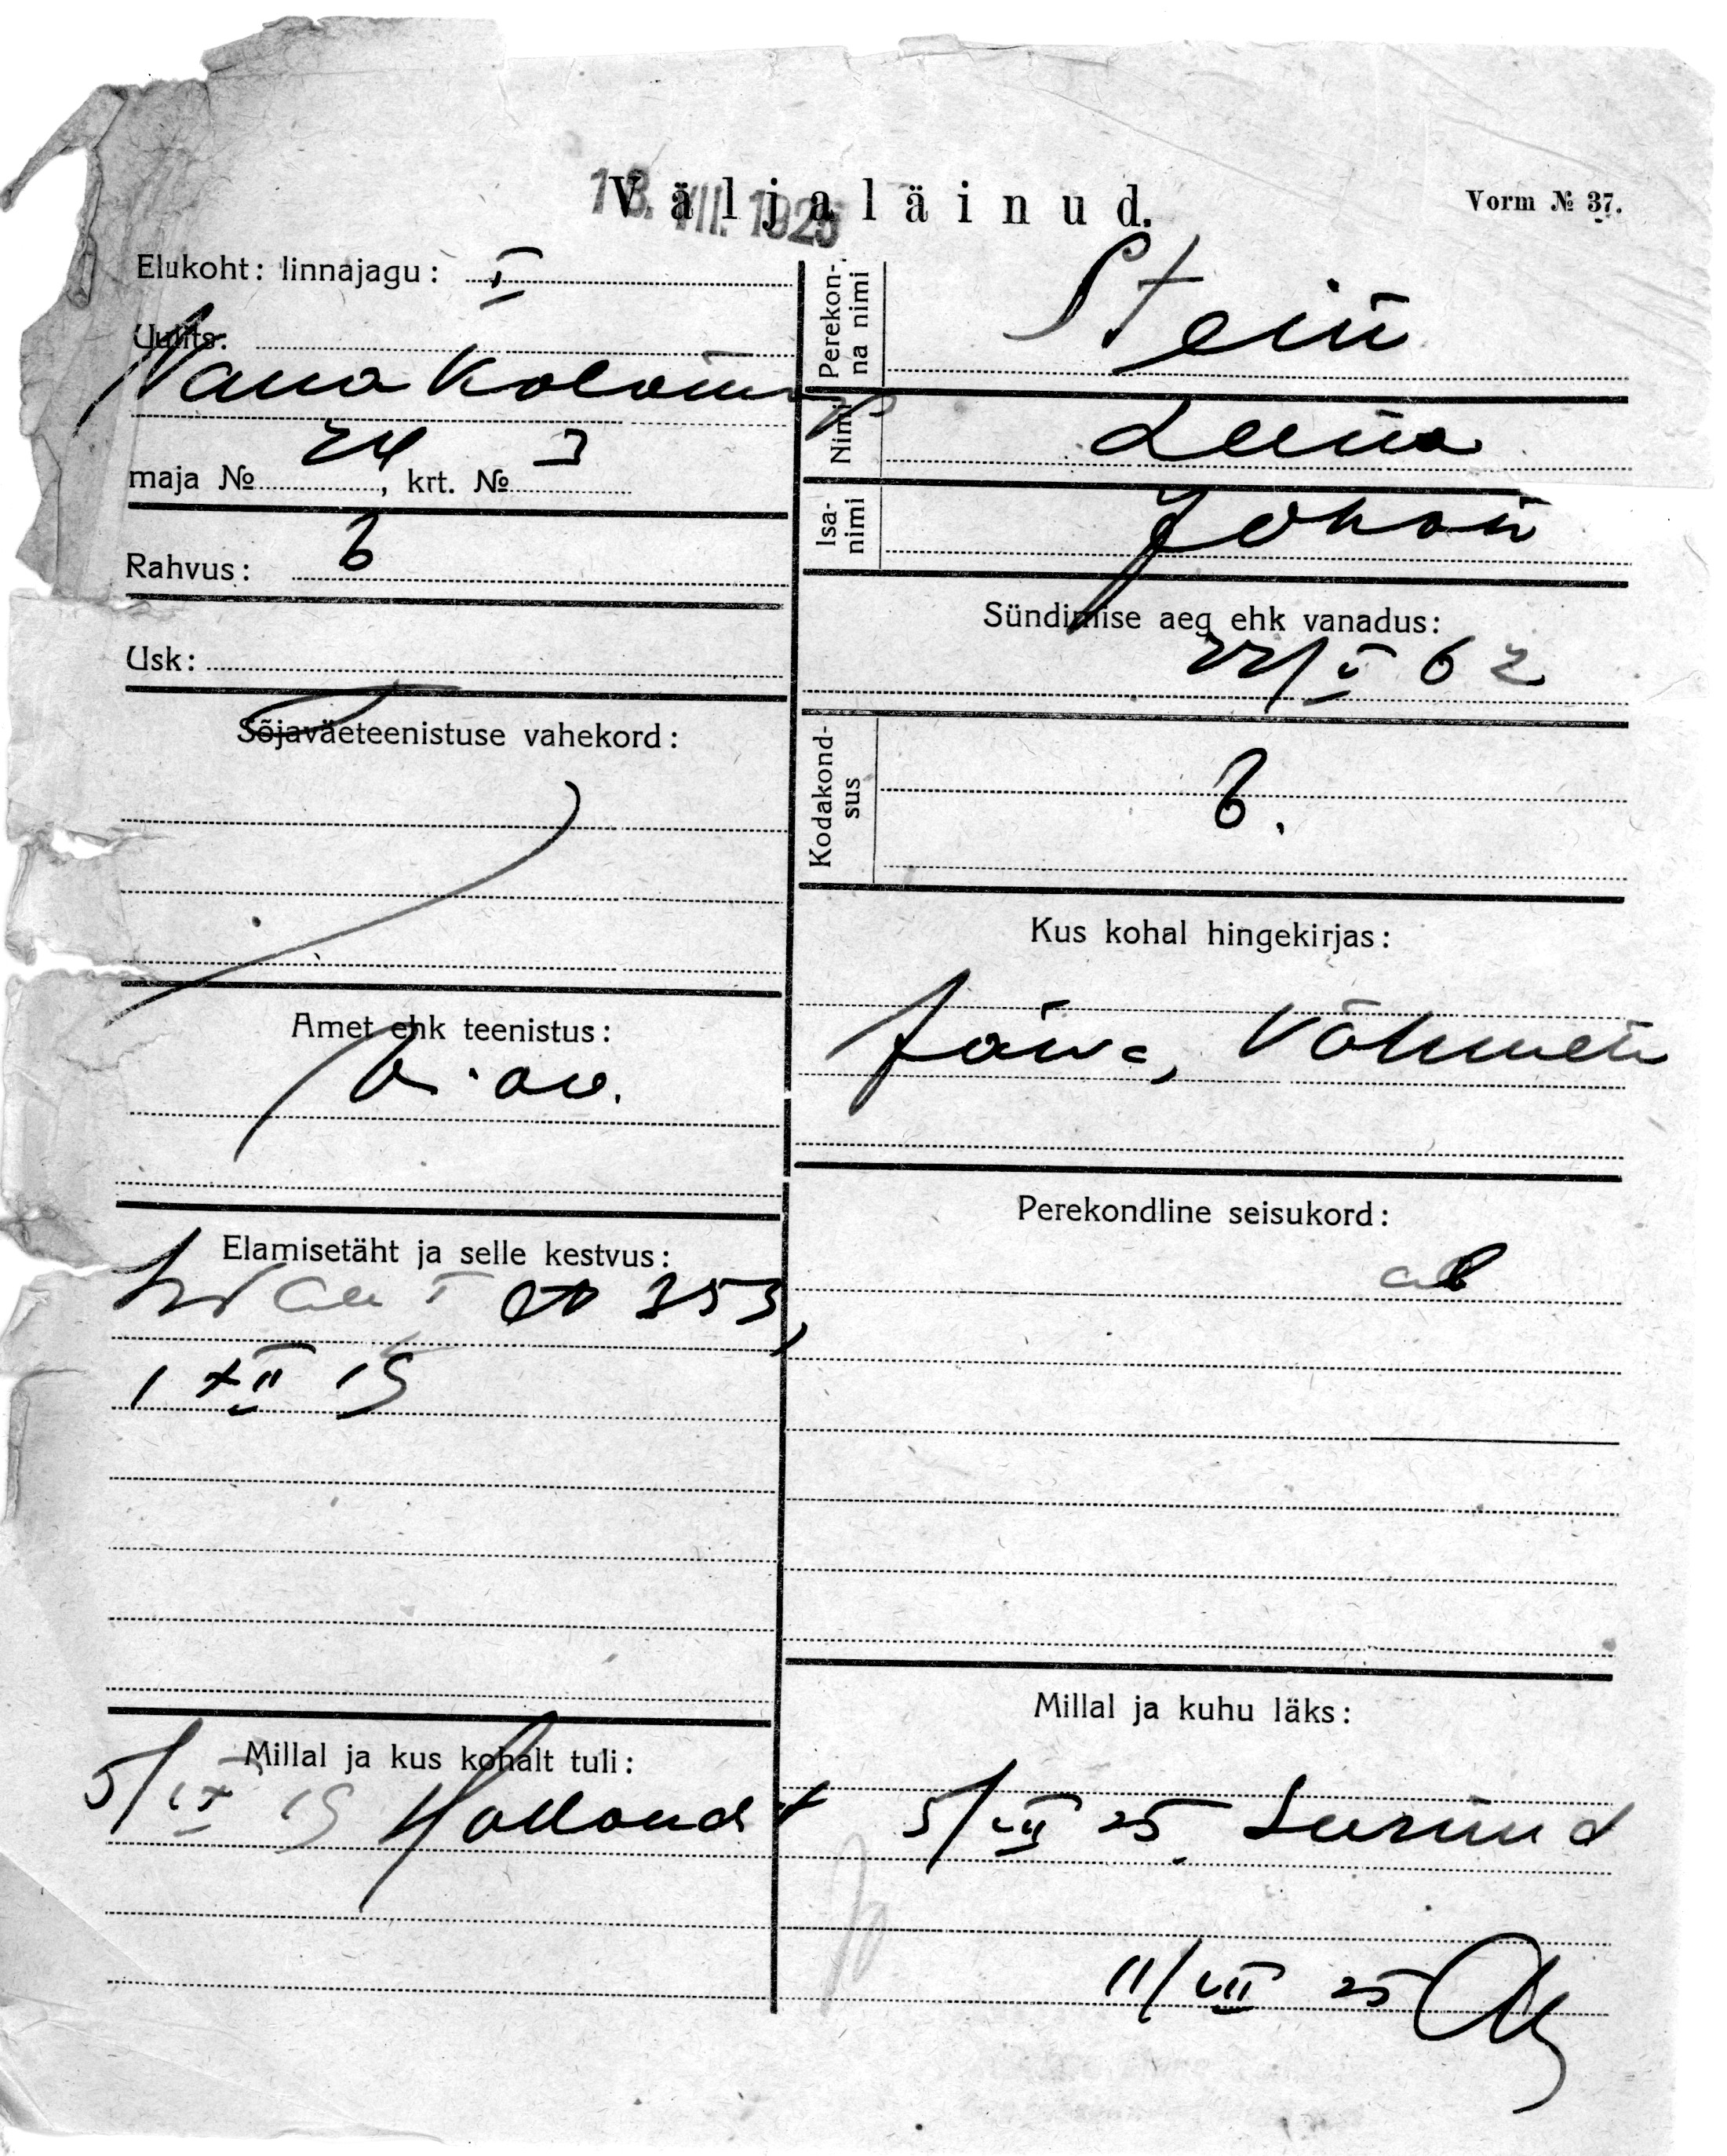 Väljaläinud.
18. VII. 1925
Vorm № 37.
Elukoht: linnajagu: I
Uulits:
Vana Kalama
maja № 24, krt. № 3
Rahvus: E
Usk:
Sõjaväeteenistuse vahekord:
Amet ehk teenistus:
Elamisetäht ja selle kestvus:
I 353,
1 XII 19
Millal ja kus kohalt tuli:
5/IX 19
Perekonna nimi
Stein
Nimi
Leena
Isanimi
Johan
Sündimise aeg ehk vanadus:
22/V 62
Kodakondsus
E.
Kus kohal hingekirjas:
Järva, Võhmuta
Perekondline seisukord:
ab
Millal ja kuhu läks:
5/VII 25 Surnud
11/VII 25